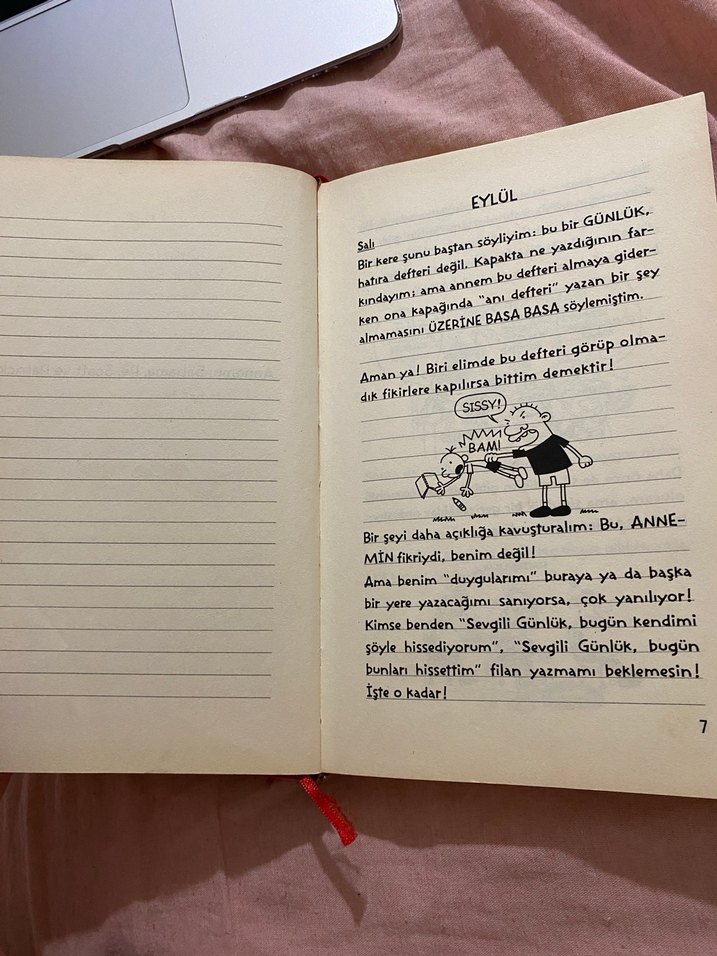 EYLÜL
Salı
Bir kere şunu baştan söyliyim: bu bir GÜNLÜK,
hatıra defteri değil. Kapakta ne yazdığının far-
kındayım; ama annem bu defteri almaya gider-
ken ona kapağında "anı defteri" yazan bir şey
almamasını ÜZERİNE BASA BASA söylemiştim.
Aman ya! Biri elimde bu defteri görüp olma-
dık fikirlere kapılırsa bittim demektir!
SISSY!
BAM!
Bir şeyi daha açıklığa kavuşturalım: Bu, ANNE-
MİN fikriydi, benim değil!
Ama benim "duygularımı" buraya ya da başka
bir yere yazacağımı sanıyorsa, çok yanılıyor!
Kimse benden "Sevgili Günlük, bugün kendimi
şöyle hissediyorum", "Sevgili Günlük, bugün
bunları hissettim" filan yazmamı beklemesin!
İşte o kadar!
7